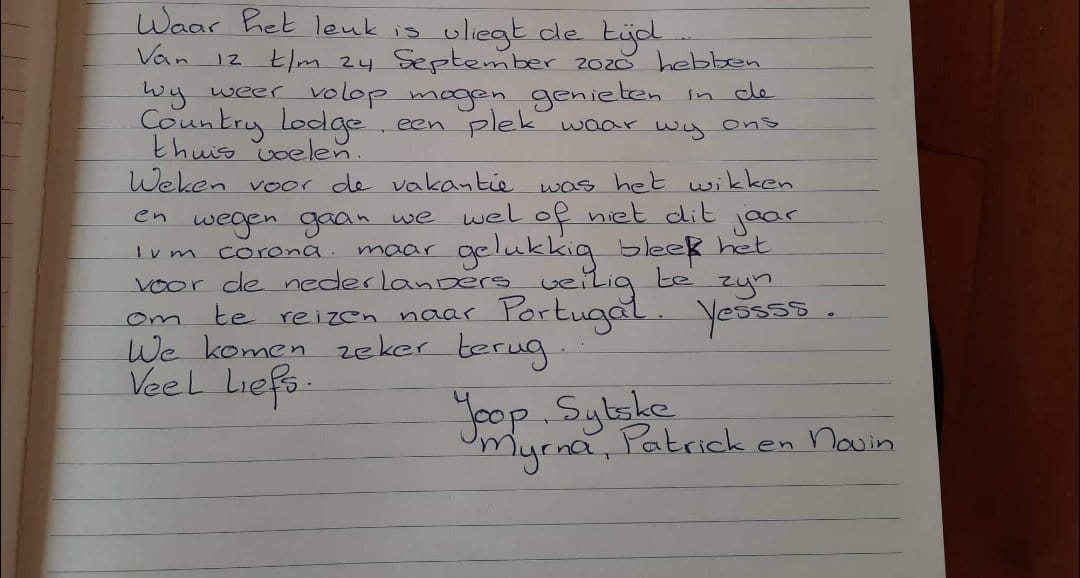 Waar het leuk is vliegt de tijd..
Van 12 t/m 24 September 2020 hebben
wy weer volop mogen genieten in de
Country Lodge, een plek waar wy ons
thuis voelen.
Weken voor de vakantie was het wikken
en wegen gaan we wel of niet dit jaar
ivm corona. maar gelukkig bleek het
voor de nederlanders veilig te zyn
om te reizen naar Portugal. Yessss.
We komen zeker terug.
Veel Liefs.
Joop, Sytske
Myrna, Patrick en Novin